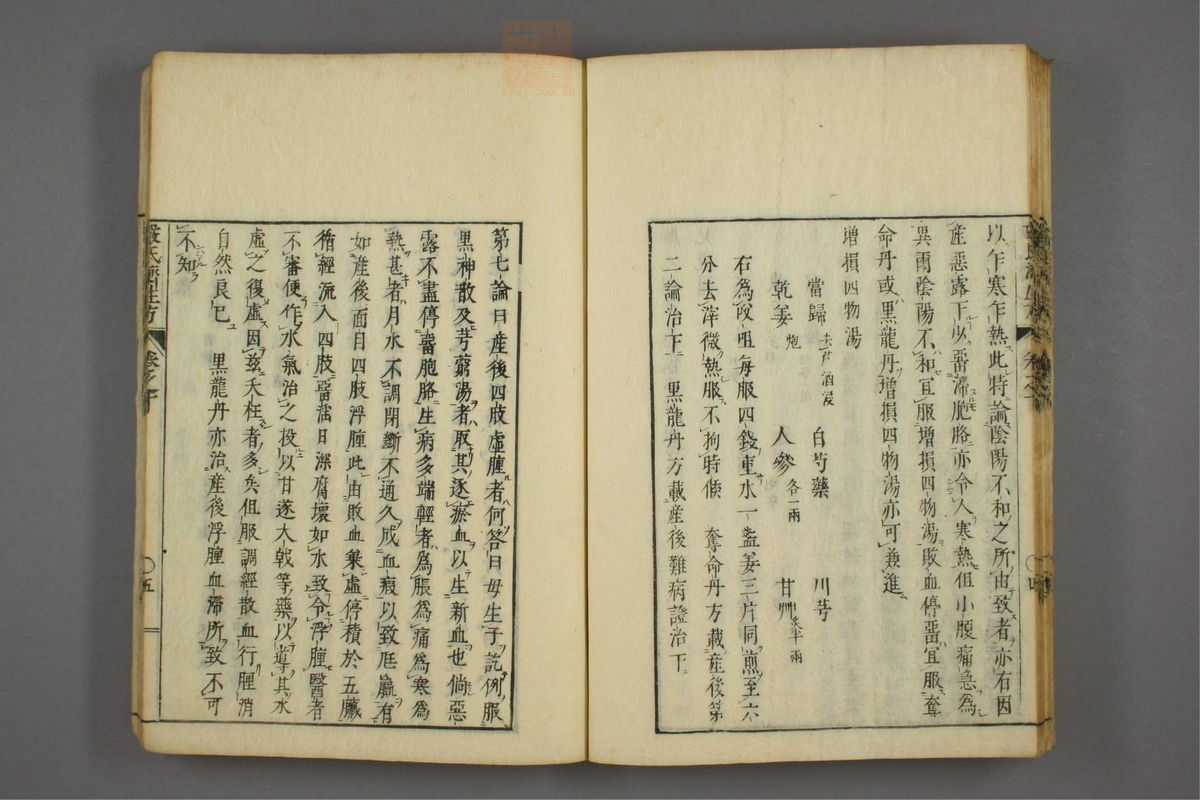 以乍寒乍熱此特論陰陽不和之所由致者亦右因
産惡露下以畱滯胞胳亦令人寒熱但小腹痛急爲
異爾陰陽不和宜服增損四物湯敗血停畱宜服奪
命丹或黒龍丹增損四物湯亦可兼進
增損四物湯
當歸去芦酒浸　白芍藥　川芎
乾姜炮　人參各一兩　甘艸炙半兩
右爲㕮咀每服四錢重水一盞姜三片同煎至六
分去滓微熱服不拘時候　奪命丹方載産後第
二論治下　黒龍丹方載産後難病證治下
第七論曰産後四肢虛腫者何答曰母生子訖例服
黒神散及芎藭湯者取其逐瘀血以生新血也倘惡
露不盡停畱胞胳生病多端輕者爲脹爲痛爲寒爲
熱甚者月水不調閉斷不通久成血瘕以致尫羸有
如産後面目四肢浮腫此由敗血乗虛停積於五臟
循經流入四肢畱滛日深腐壞如水致令浮腫醫者
不審便作水氣治之投以甘遂大戟等藥以導其水
虛之復虛因茲夭枉者多矣但服調經散血行腫消
自然良已　黒龍丹亦治産後浮腫血滯所致不可
不知
嚴氏濟生方　卷之十　五
四